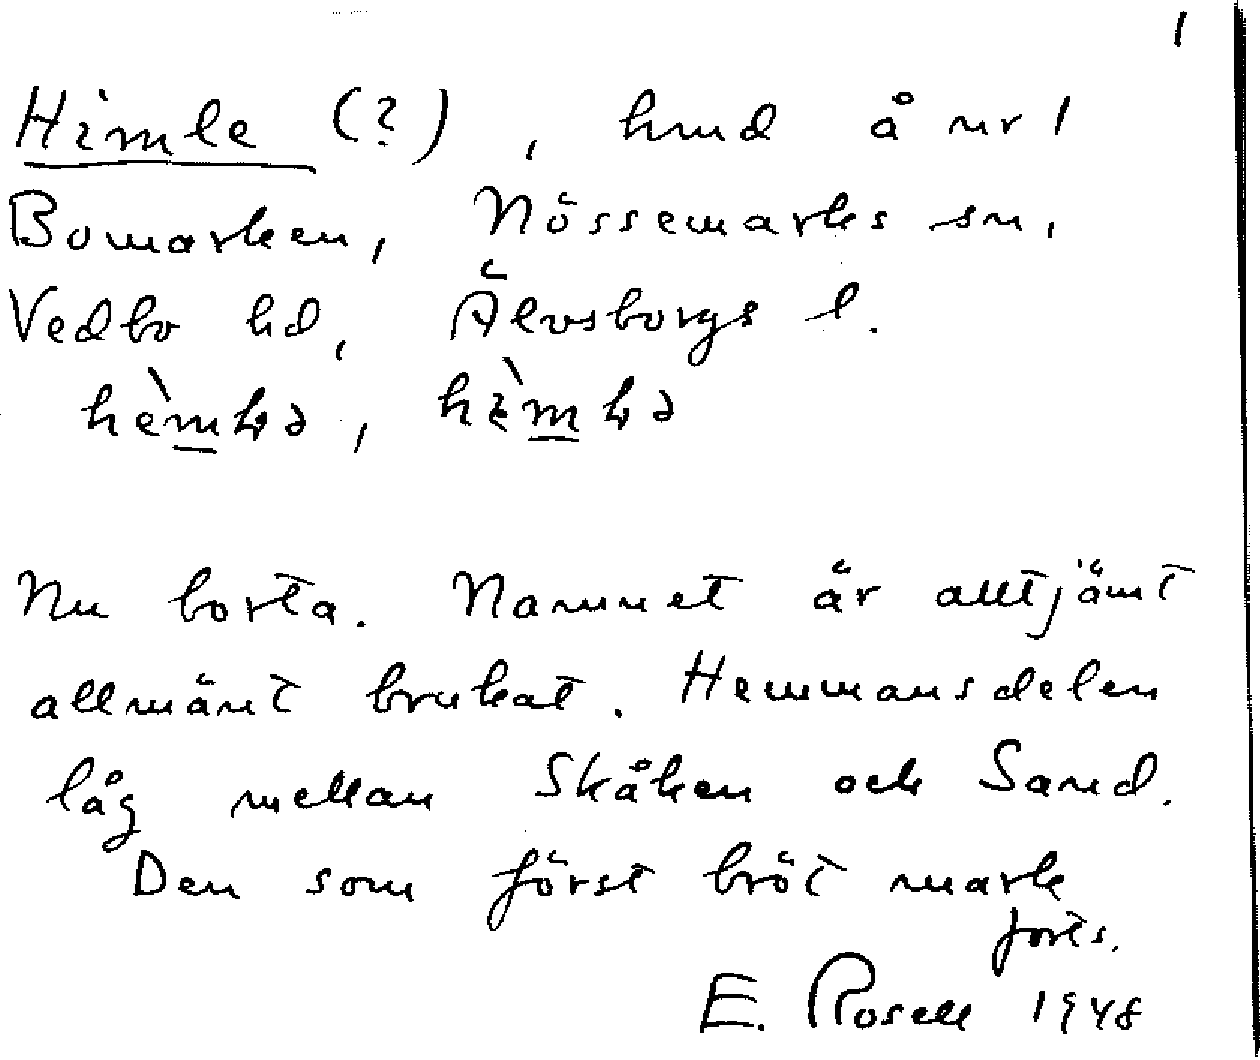 1
Himle (?), hmd å nr 1
Bomarken, Nössemarks sn,
Vedbo hd, Älvsborgs l.
Nu borta. Namnet är alltjämt
allmänt brukat. Hemmansdelen
låg mellan Skåken och Sand.
Den som först bröt mark
forts.
E. Rosell 1948